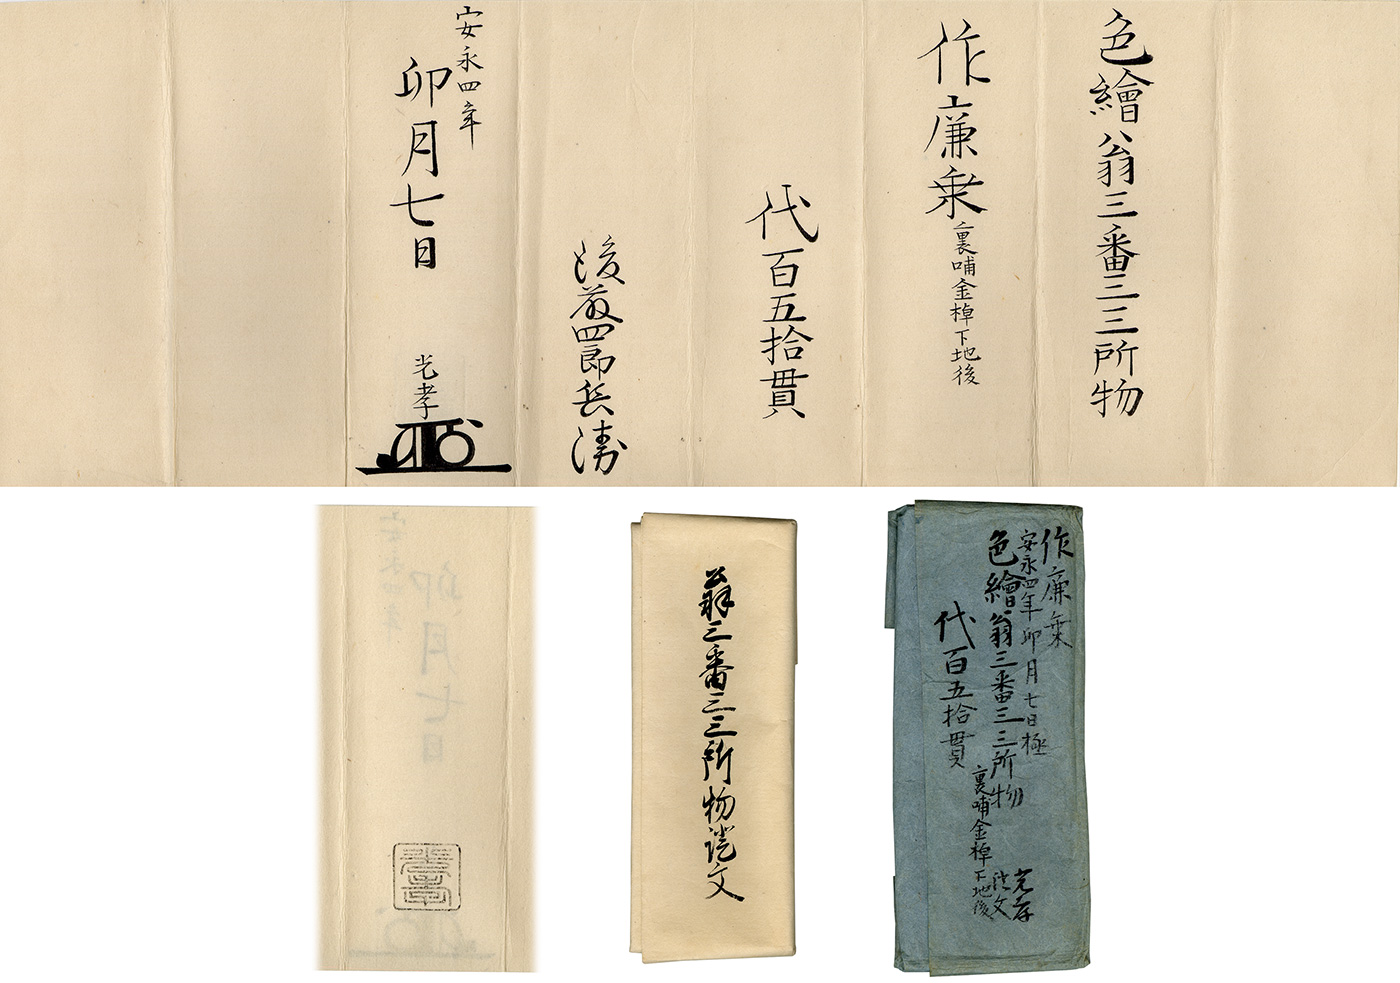 色繪翁三番三三所物
作廉乗 裏哺金棹下地後
代百五拾貫
後藤四郎兵衛
安永四年
卯月七日
光孝
翁三番三三所物證文
作廉乗
安永四年卯月七日極
光孝
色繪翁三番三三所物
證文
代百五拾貫
裏哺金棹下地後